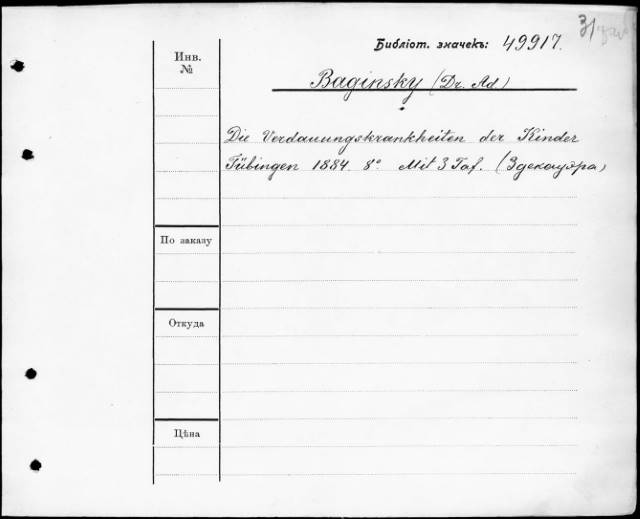 31
Библіот. значекъ: 49917.
Инв.
№
Baginsky (Dr. Ad)
Die Verdauungskrankheiten der Kinder
Tübingen 1884. 8°. Mit 3 Taf. (Здекауэра)
По заказу
Откуда
Цѣна